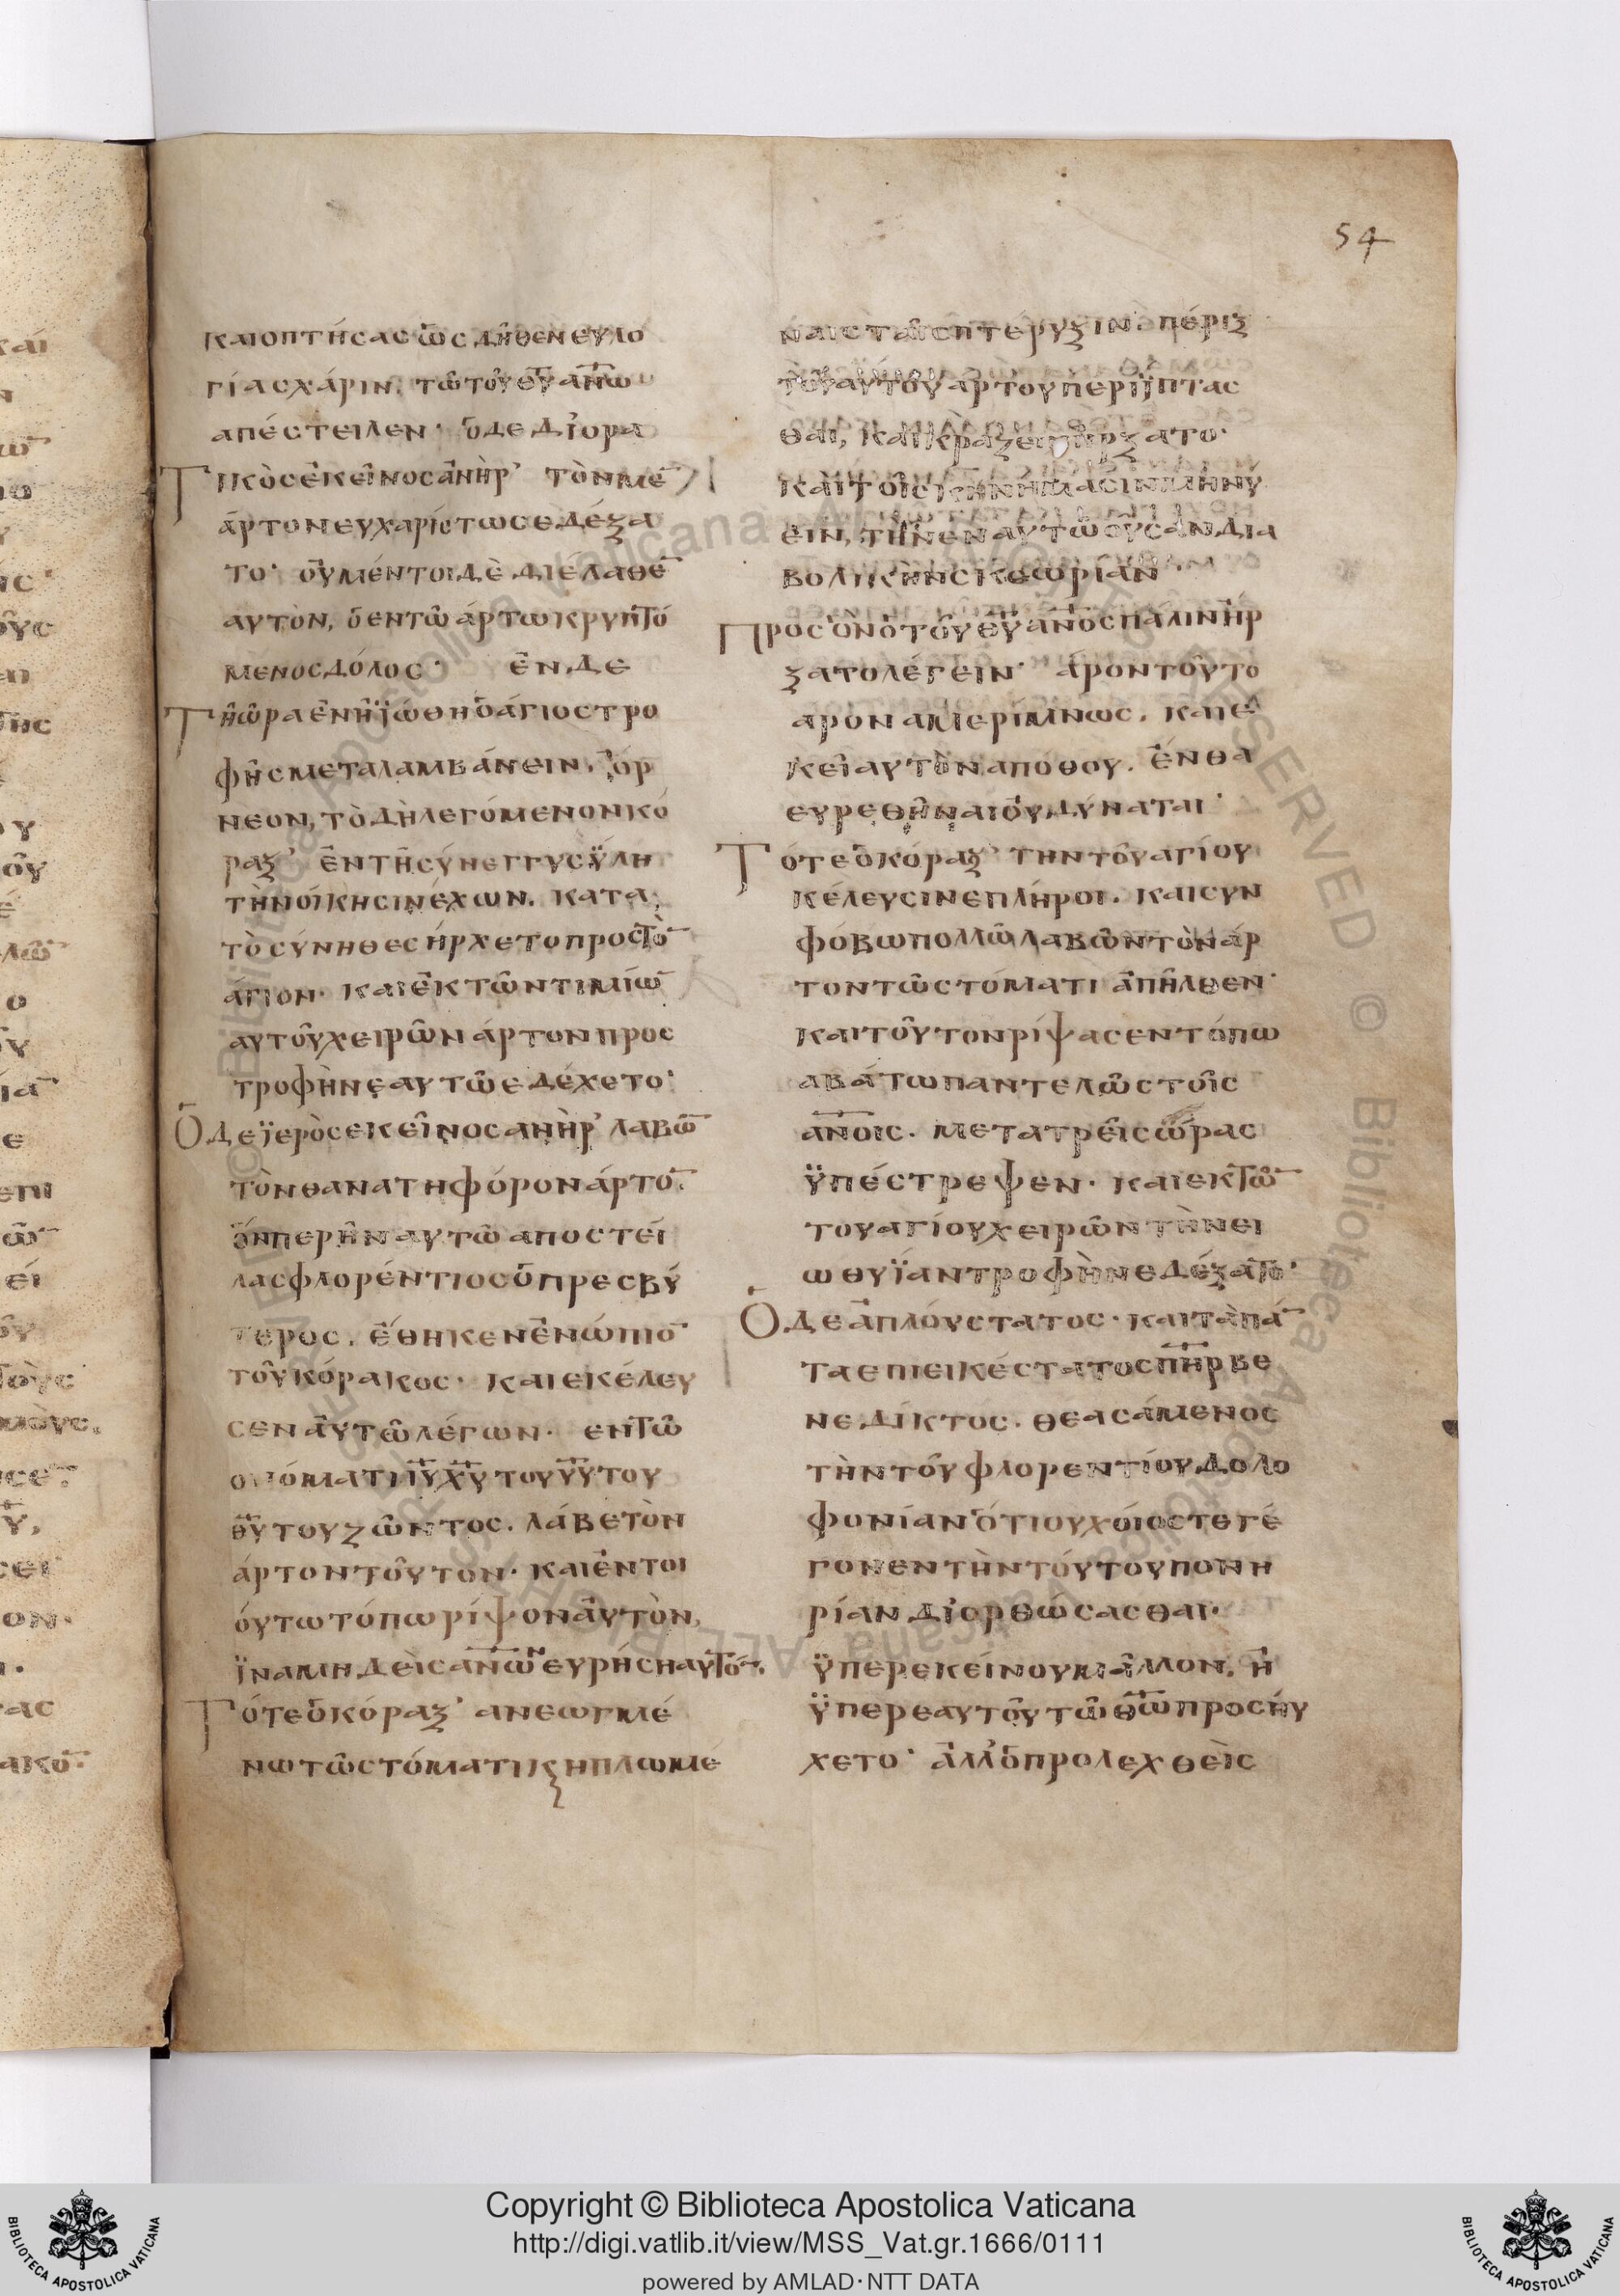 54
καιοπτήσας ὡς δῆθεν ευλο
γίας χάριν, τῶ τοῦ θῦ ανω
απέστειλεν· ὁ δε διορα
Τικὸς ἐκεῖνος ἀνὴρ τὸν με̄
άρτον ευχαρίστως εδέξα
το· οὐ μέντοι δὲ διέλαθε̄
αυτὸν, ὁ εν τῶ άρτω κρυπτό
μενος δόλος· ἐν δε
Τῆ ὥρα ἐν ῆ ϊώθη ὁ άγιος τρο
φῆς μεταλαμβάνειν, όρ
νεον, τὸ δὴ λεγόμενον κό
ραξ ἐν τῆ σύνεγγυς ΰλη
τὴν οίκησιν έχων, κατα
τὸ σύνηθες ήρχετο προς τὸ̄
άγιον· και ἐκ τῶν τιμίω̄
αυτοῦ χειρῶν άρτον προς
τροφὴν εαυτῶ εδέχετο·
Ὁ δε ϊερὸς εκεῖνος ανὴρ λαβω̄
τὸν θανατηφόρον άρτο̄,
όνπερ ῆν αυτῶ αποστεί
λας φλορέντιος ὁ πρεσβύ
τερος, έθηκεν ἐνώπιο̄
τοῦ κόρακος· και εκέλευ
σεν αὐτῶ λέγων· εν τῶ
ονόματι ῑῡ χ̄ῡ του ῡῡ του
θ̄ῡ του ζῶντος, λάβε τὸν
άρτον τοῦτον· και ἐν τοι
ούτω τόπω ρίψον αὐτὸν,
ϊνα μηδεὶς ανων ευρήση αυτό̄.
Τότε ὁ κόραξ ανεωγμέ
νω τῶ στόματι κ ηπλωμέ
ναις ταῖς πτέρυξιν πέριξ
τοῦ αυτοῦ άρτου περιϊπτας
θαι, και κράζειν ήρξατο·
και τοῖς κινήμασιν μηνύ
ειν, τὴν εν αυτῶ οῦσαν δια
βολικὴν σκεωρίαν
Προς ὃν ὁ τοῦ θ̄ῡ ανος πάλιν ήρ
ξατο λέγειν· άρον τοῦτο
αρον αμερίμνως, και ε
κεῖ αυτὸν απόθου, ένθα
ευρεθῆναι οὐ δύναται·
Τότε ὁ κόραξ την τοῦ αγίου
κέλευσιν επλήροι, και συν
φόβω πολλῶ λαβὼν τὸν άρ
τον τῶ στόματι ἀπῆλθεν·
και τοῦτον ρίψας εν τόπω
αβάτω παντελῶς τοῖς
ανοις, μετα τρεῖς ώρας
ϋπέστρεψεν· και εκ τῶ̄
του αγίου χειρῶν τὴν ει
ωθυῖαν τροφὴν εδέξατο·
Ὁ δε ἁπλούστατος· και τὰ πά̄
τα επιεικέστατος πηρ βε
νεδίκτος, θεασάμενος
τὴν τοῦ φλορεντίου δολο
φονίαν ὅτι ουχ οίός τε γέ
γονεν τὴν τούτου πονη
ρίαν διορθώσασθαι,
ϋπερ εκείνου μᾶλλον, ἢ
ϋπερ εαυτοῦ τῶ θ̄ω̄ προσηύ
χετο· ἀλλ' ὁ προλεχθεὶς
Copyright © Biblioteca Apostolica Vaticana
http://digi.vatlib.it/view/MSS_Vat.gr.1666/0111
powered by AMLAD·NTT DATA
BIBLIOTECA APOSTOLICA VATICANA
BIBLIOTECA APOSTOLICA VATICANA